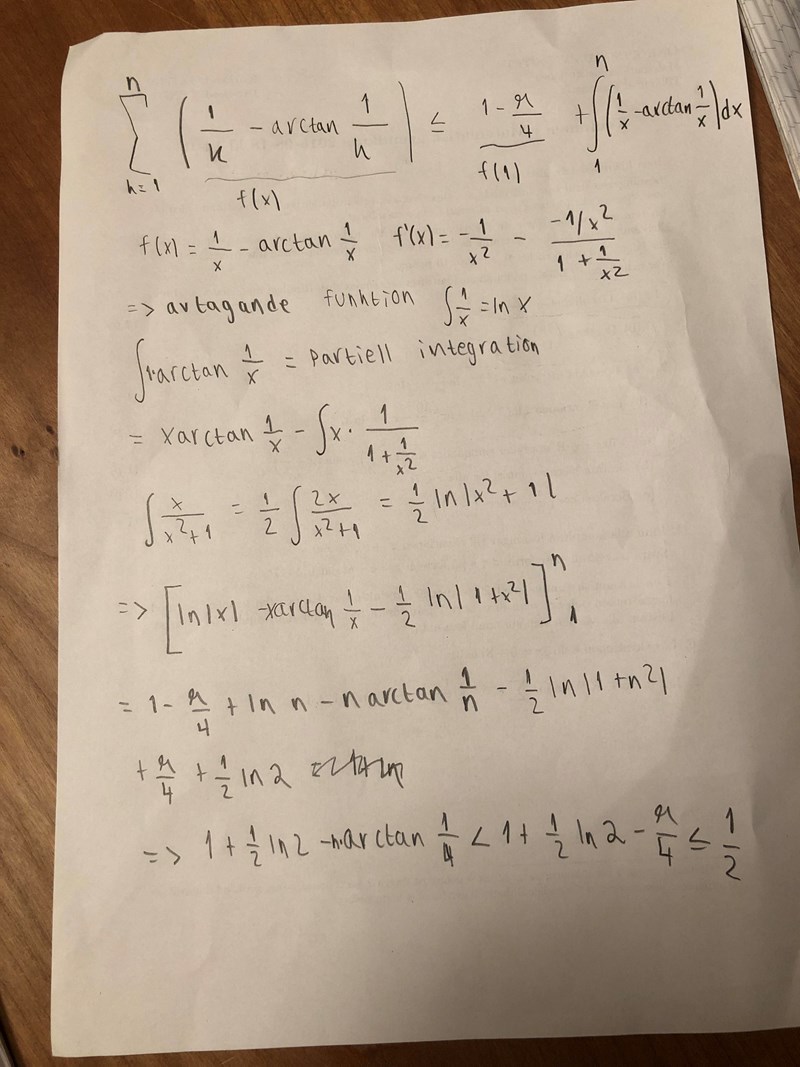 n∑k=1 (1/k - arctan 1/k) ≤ 1 - π/4 + ∫₁ⁿ (1/x - arctan 1/x) dx
f(x) f(1)
f(x) = 1/x - arctan 1/x f'(x) = -1/x² - (-1/x²)/(1 + 1/x²)
=> avtagande funktion ∫ 1/x = ln x
∫ 1·arctan 1/x = Partiell integration
= x arctan 1/x - ∫ x · 1/(1 + 1/x²)
∫ x/(x²+1) = 1/2 ∫ 2x/(x²+1) = 1/2 ln |x² + 1|
=> [ln|x| - x arctan 1/x - 1/2 ln| 1 + x²|]₁ⁿ
= 1 - π/4 + ln n - n arctan 1/n - 1/2 ln|1 + n²|
+ π/4 + 1/2 ln 2
=> 1 + 1/2 ln 2 - n·arctan 1/4 < 1 + 1/2 ln 2 - π/4 ≤ 1/2